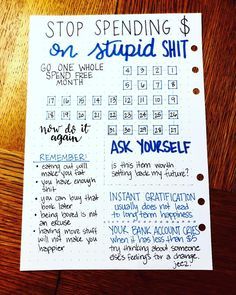 STOP SPENDING $
on stupid SHIT
GO ONE WHOLE
SPEND FREE
MONTH
4 3 2 1
8 7 6 5
17 16 15 14 13 12 11 10 9
26 25 24 23 22 21 20 19 18
31 30 29 28 27
now do it
again
REMEMBER:
• eating out will
make you fat
• you have enough
shit
• you can buy that
book later
• being bored is not
an excuse
• having more stuff
will not make you
happier
ASK YOURSELF
is this item worth
setting back my future?
INSTANT GRATIFICATION
usually does not lead
to long term happiness
YOUR BANK ACCOUNT CRIES
when it has less than $5
try thinking about someone
else's feelings for a change.
jeez.